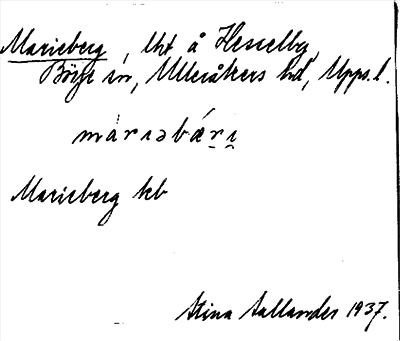 Marieberg, lht å Hesselby,
Börje sn, Ulleråkers hd, Upps. l.
màriabǽri
Marieberg kb
Stina Sallander 1937.